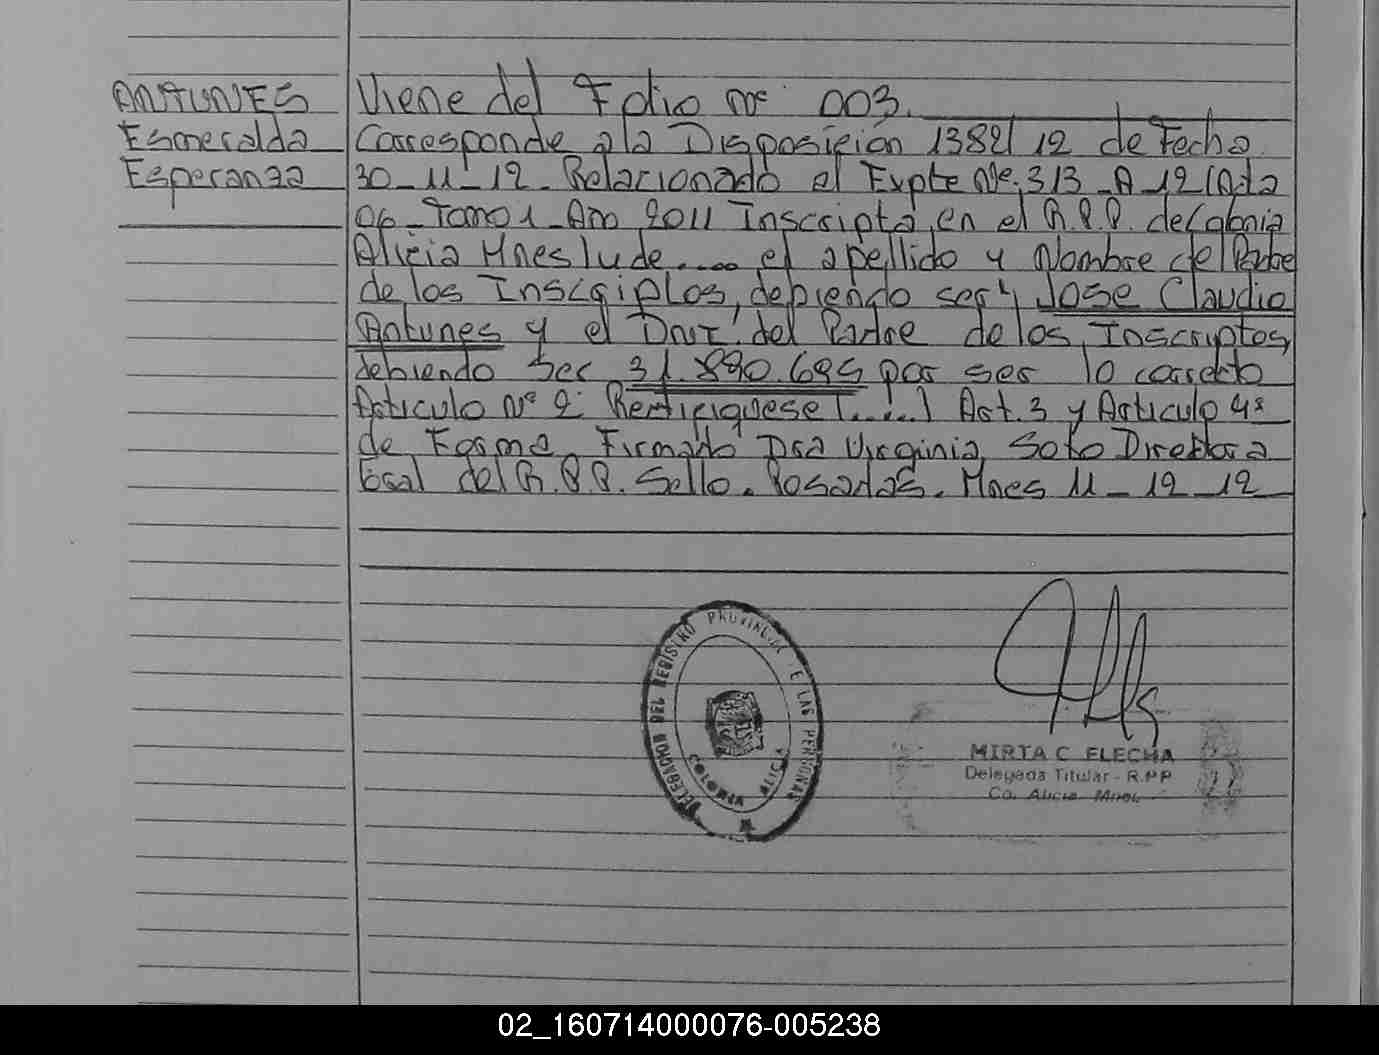 ANTUNES
Esmeralda
Esperanza
Viene del Folio Nº 003.
Corresponde a la Disposición 1382/12 de Fecha
30-11-12. Relacionado al Expte Nº 313-A-12 (Acta
06-Tomo 1-Año 2011 Inscripta en el R.P.P. de Colonia
Alicia Mnes lude.... el apellido y Nombre del Padre
de los Inscriptos, debiendo ser "Jose Claudio
Antunes y el DNI. del Padre de los Inscriptos,
debiendo ser 31.890.695 por ser lo correcto
Articulo Nº 2: Rectifiquese (......) Art. 3 y Articulo 4º
de Forma. Firmado Dra Virginia Soto Directora
Gral del R.P.P. Sello. Posadas. Mnes 11-12-12
DELEGACION DEL REGISTRO PROVINCIAL DE LAS PERSONAS
COLONIA ALICIA
MIRTA C. FLECHA
Delegada Titular - R.P.P
Co. Alicia Mnes.
02_160714000076-005238